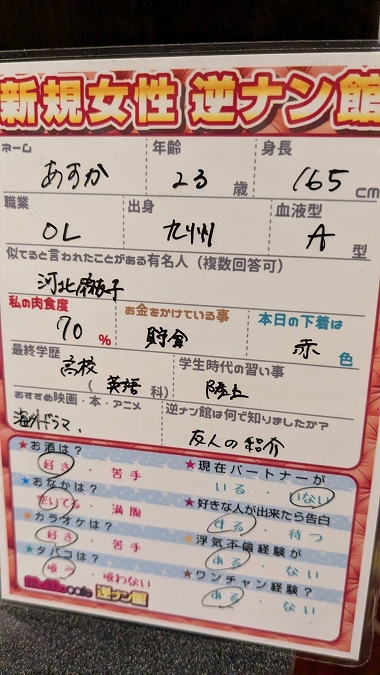 新規女性 逆ナン館
ネーム 年齢 身長
あすか 23歳 165cm
職業 出身 血液型
OL 九州 A型
似てると言われたことがある有名人（複数回答可）
河北麻友子
私の肉食度 お金をかけている事 本日の下着は
70% 貯金 赤色
最終学歴 学生時代の習い事
高校（英語科） 陸上
おすすめ映画・本・アニメ 逆ナン館は何で知りましたか？
海外ドラマ、 友人の紹介
★お酒は？ ★現在パートナーが
好き・苦手 いる・いない
★おなかは？ ★好きな人が出来たら告白
足りてる・満腹 する・待つ
★カラオケは？ ★浮気不倫経験が
好き・苦手 ある・ない
★タバコは？ ★ワンチャン経験が
吸う・吸わない ある・ない
cafe 逆ナン館